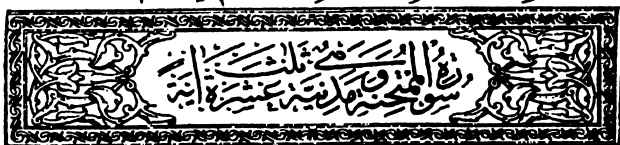 سورة الممتحنة مدنية وهي ثلث عشرة اية